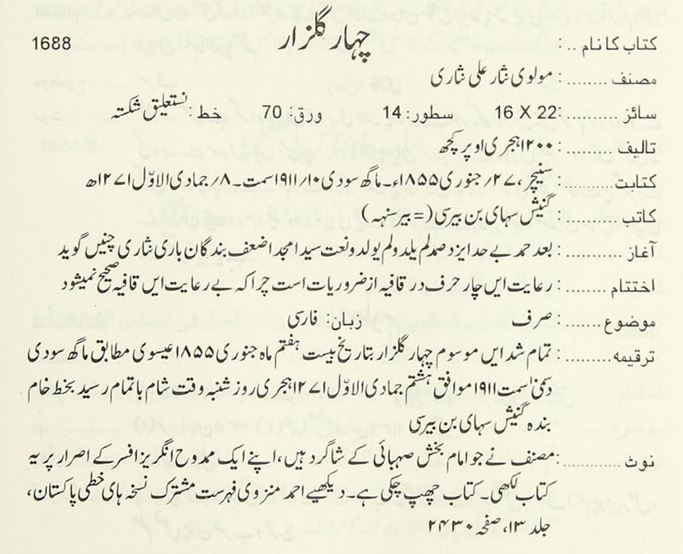 کتاب کا نام ..: چہار گلزار 1688
مصنف ........: مولوی نثار علی نثاری
سائز .........: 16 X 22 سطور: 14 ورق: 70 خط: نستعلیق شکستہ
تالیف ........: ۱۲۰۰ہجری اوپر کچھ
کتابت .......: سنیچر، ۲۷؍ جنوری ۱۸۵۵ء۔ ماگھ سودی ۱۰؍ ۱۹۱۱سمت۔ ۸؍ جمادی الاوّل ۱۲۷۱ھ
کاتب ........: گنیش سہای بن بیرسی (= بیر سنہہ)
آغاز ..........: بعد حمد بے حد ایزد صمد لم یلد ولم یولد ونعت سید امجد اضعف بندگان باری نثاری چنیں گوید
اختتام ........: رعایت ایں چار حرف در قافیہ از ضروریات است چرا کہ بے رعایت ایں قافیہ صحیح نمیشود
موضوع ......: صرف زبان: فارسی
ترقیمہ .......: تمام شد ایں موسوم چہار گلزار بتاریخ بیست ہفتم ماہ جنوری ۱۸۵۵ عیسوی مطابق ماگھ سودی
دسمی سمت ۱۹۱۱ موافق ہشتم جمادی الاوّل ۱۲۷۱ ہجری روز شنبہ وقت شام با تمام رسید بخط خام
بندہ گنیش سہای بن بیرسی
نوٹ .........: مصنف نے جو امام بخش صہبائی کے شاگرد ہیں، اپنے ایک ممدوح انگریز افسر کے اصرار پر یہ
کتاب لکھی۔ کتاب چھپ چکی ہے۔ دیکھیے احمد منزوی فہرست مشترک نسخہ ہای خطی پاکستان،
جلد ۱۳، صفحہ ۲۴۳۰